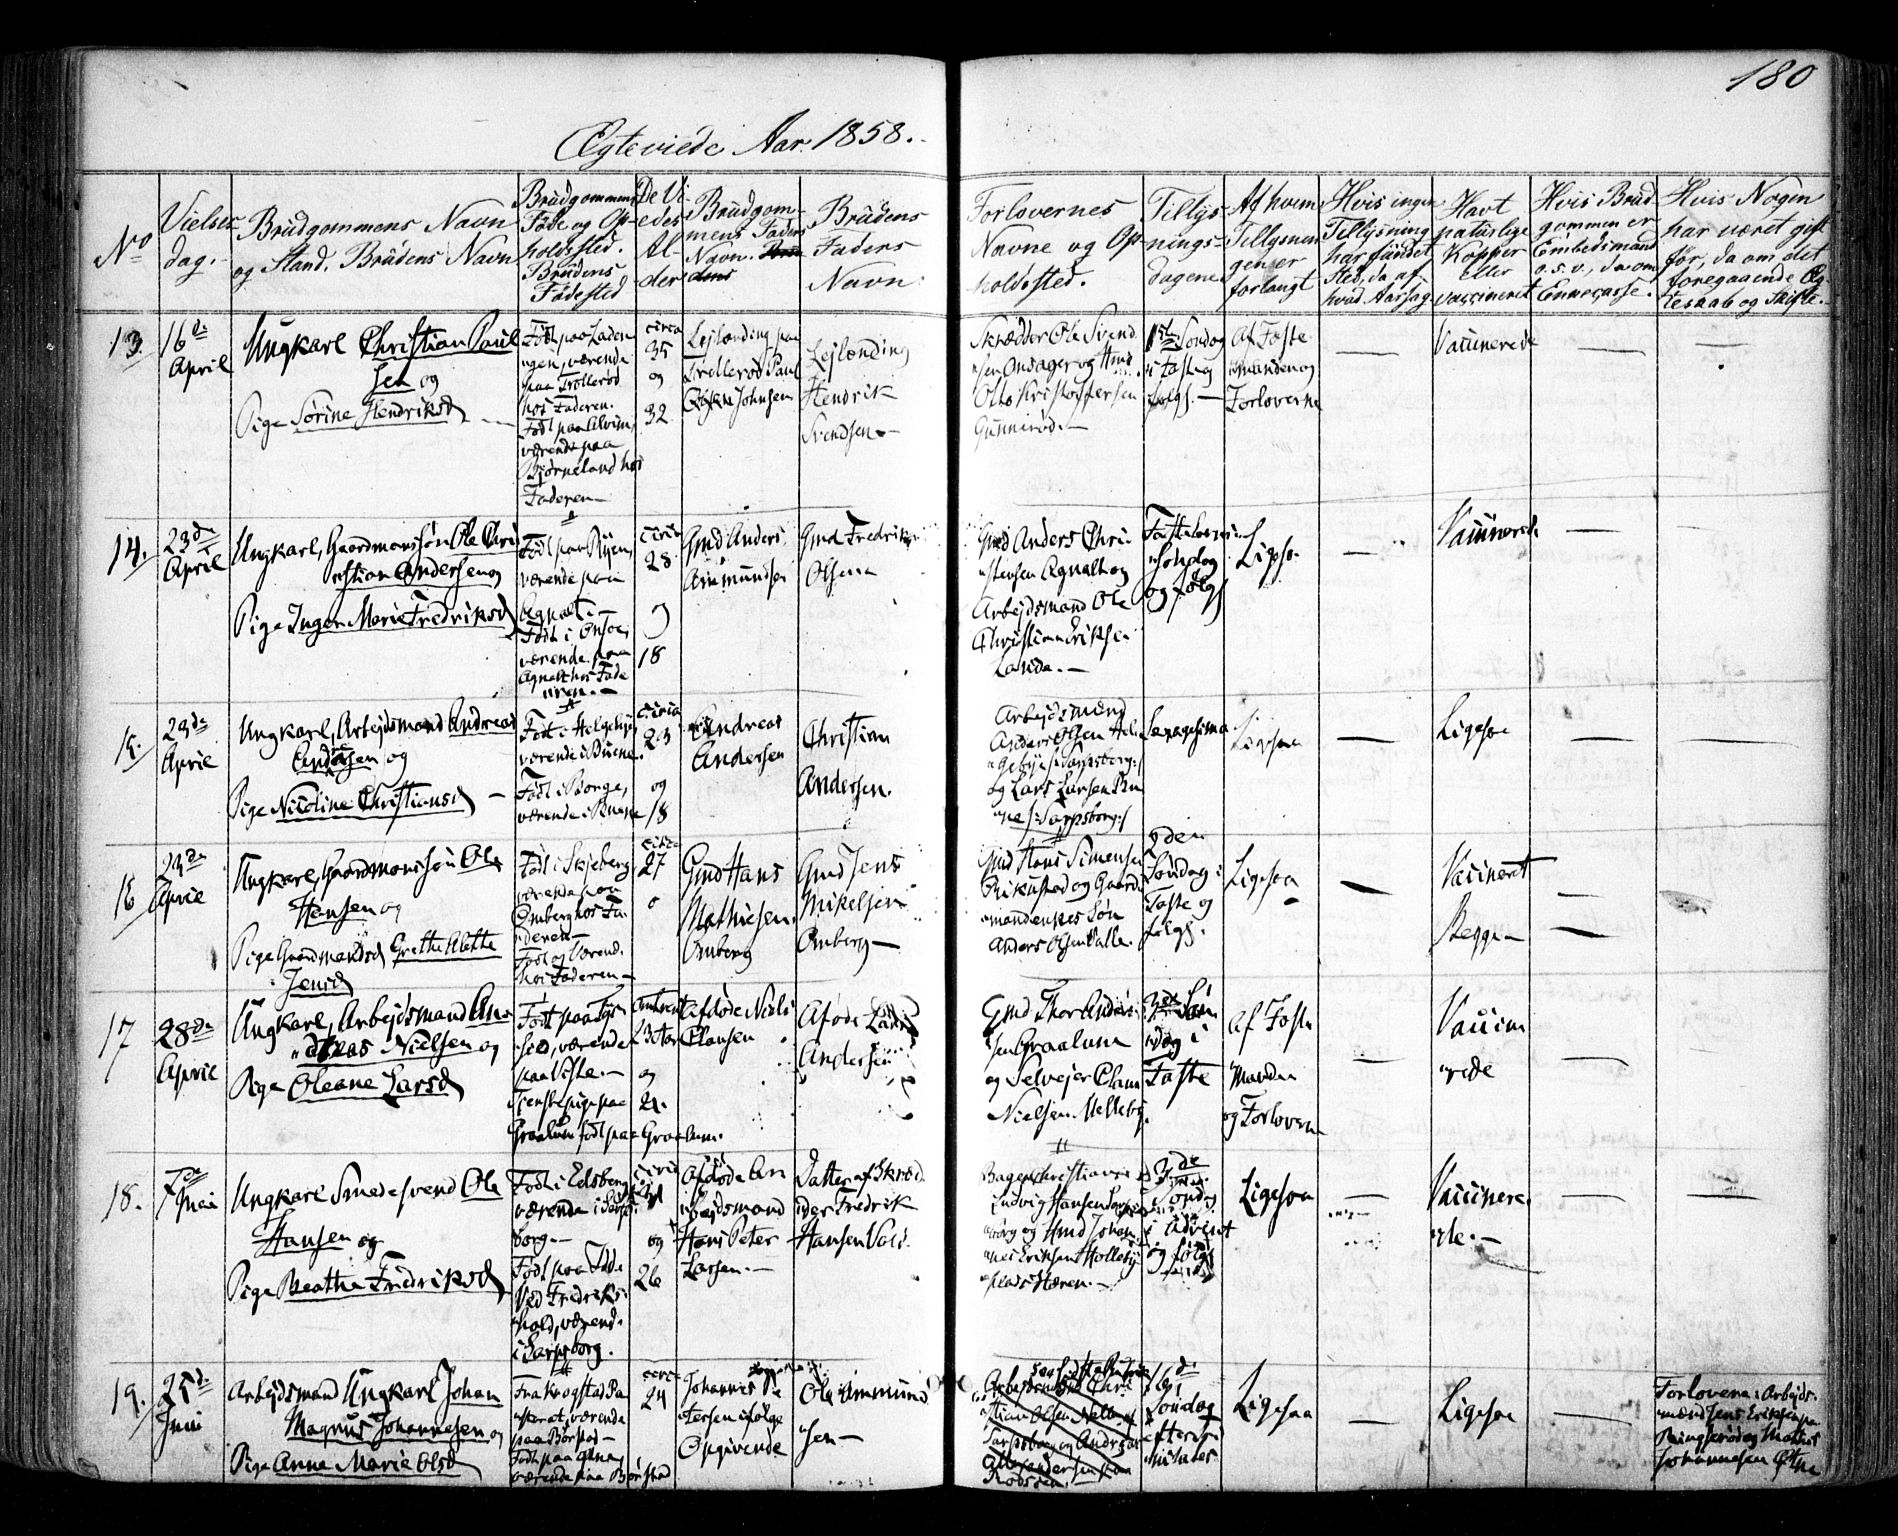 180
Ægteviede Aar 1858.
No
Vielses-
dag.
Brudgommens Navn
og Stand. Brudens Navn
Brudgommens
Føde og Op-
holdssted.
Brudens
Fødested
De Vi-
edes
Al-
der
Brudgom-
mens Faders
Navn.
Brudens
Faders
Navn.
Forlovernes
Navne og Op-
holdssted.
Tillys-
nings-
dagene
Af hvem
Tillysnin-
gen er
forlangt
Hvis ingen
Tillysning
har fundet
Sted, da af
hvad Aarsag.
Havt
naturlige
Kopper
eller
vaccineret
Hvis Brud-
gommen er
Embedsmand
o. s. v., da om
Enkecasse.
Hvis Nogen
har været gift
før, da om det
foregaaende Æg-
teskab og Skifte.
13.
16de
April
Ungkarl Christian Paul
sen og
Pige Sørine Hendriksd
Født paa Laden-
gen, værende
paa Trollerød
hos Faderen.
Født paa
værende paa
Bjørneland hos
Faderen
circa
35
og
32
Lejlænding paa
Trollerød Paul
Johnsen
Lejlænding
Hendrik
Svendsen
Skrædder Ole Svend
sen Onsager og Hmd
Otto Kristoffersen
Gunnerød.
1ste Søndag
i Faste og
følg.
Af Faste
manden og
Forloverne
Vaccinerede
14.
23de
April
Ungkarl, Gaardmandssøn Ole Chri
stian Andersen og
Pige Inger Marie Fredriksd
værende paa
Agnalt.
Født i Onsøe,
værende paa
Agnalt hos Fade
ren.
circa
28
og
18
Gmd Anders
Asmundsen
Gmd Fredrik
Olsen
Gmd Anders Chri-
stensen Agnalt og
Arbejdsmand Ole
Christian Eriksen
Lande.
Fastelavns
Søndag
og følg
Ligesaa
Vaccinerede
15.
23de
April
Ungkarl, Arbejdsmand Andreas
Andersen og
Pige Nicoline Christiansd
Født i Helgebye,
værende i Buene.
Født i Borge,
værende i Buene
circa
23
og
18
Andreas
Andersen
Christian
Andersen.
Arbejdsmænd
Anders Olsen Hel-
gebye /: Sarpsborg :/
og Lars Larsen Bu
ene /: Sarpsborg :/
Sexagesima
Ligesaa
Ligesaa
16
23de
April
Ungkarl, Gaardmandssøn Ole
Hansen og
Pige Gaardmandsd Grethe Alette
Jensd
Født i Skjeberg
værende paa
Omberg hos Fa-
deren
Født og værend.
hos Faderen
circa
27
Gmd Hans
Mathiesen
Omberg
Gmd Jens
Mikelsen
Omberg
Gmd Hans Simensen
og Gaard-
mandens Søn
Anders Olsen Valle.
2den
Søndag i
Faste og
følg.
Ligesaa
Vaccineret
Begge
17
28de
April
Ungkarl, Arbejdsmand An-
dreas Nielsen og
Pige Oleane Larsd
værende
paa Viste.
Tjenestepige paa
Graalum født paa Graalum.
omtrent
23 Aar
og
21.
Afdøde Niels
Clausen
Afdøde Lars
Andersen
Gmd Thor Anders-
sen Graalum
og Selvejer Claus
Nielsen Melleby.
3die Søn
dag i
Faste
Af Faste
Manden
og Forlovern
Vaccine
rede
18.
7de
Juni
Ungkarl Smedesvend Ole
Hansen og
Pige Beathe Fredriksd
Født i Edsberg
værende i Sarps-
borg.
Født paa Tiste
Ved Fredriks-
hold, værend.
i Sarpsborg.
circa
og
26
Afdøde Ar-
bejdsmand
Hans Peter
Larsen.
Datter af Skræd-
der Fredrik
Hansen Vold.
Bager Christian
Ludvig Hansen Sarps-
borg og Hmd Johan-
nes Eriksen Holleby
plads Hæren.
3de
Søndag
i Advent
og følg
Ligesaa
Vaccinere
de.
19.
25de
Juni
Arbejdsmand Ungkarl Johan
Magnus Johannesen og
Pige Anne Marie Olsd
Fra Krogstad Pa
storat, værende
paa Borstad
Født paa
værende paa Borstad
circa
24
Johannes Pe
tersen ifølge
Opgivende
Ole Ammund
sen
Arbejdsmand Chri-
stian Olsen
Sarpsborg og Andreas
Søndag
efter
Ligesaa
Ligesaa
Forlovene: Arbejds-
mænd Jens Eriksen paa
Ringserød og Mathis
Johannesen